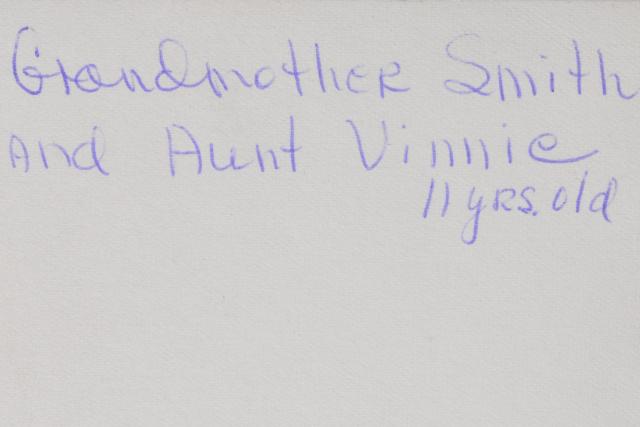 Grandmother Smith
And Aunt Vinnie
11 yrs. old